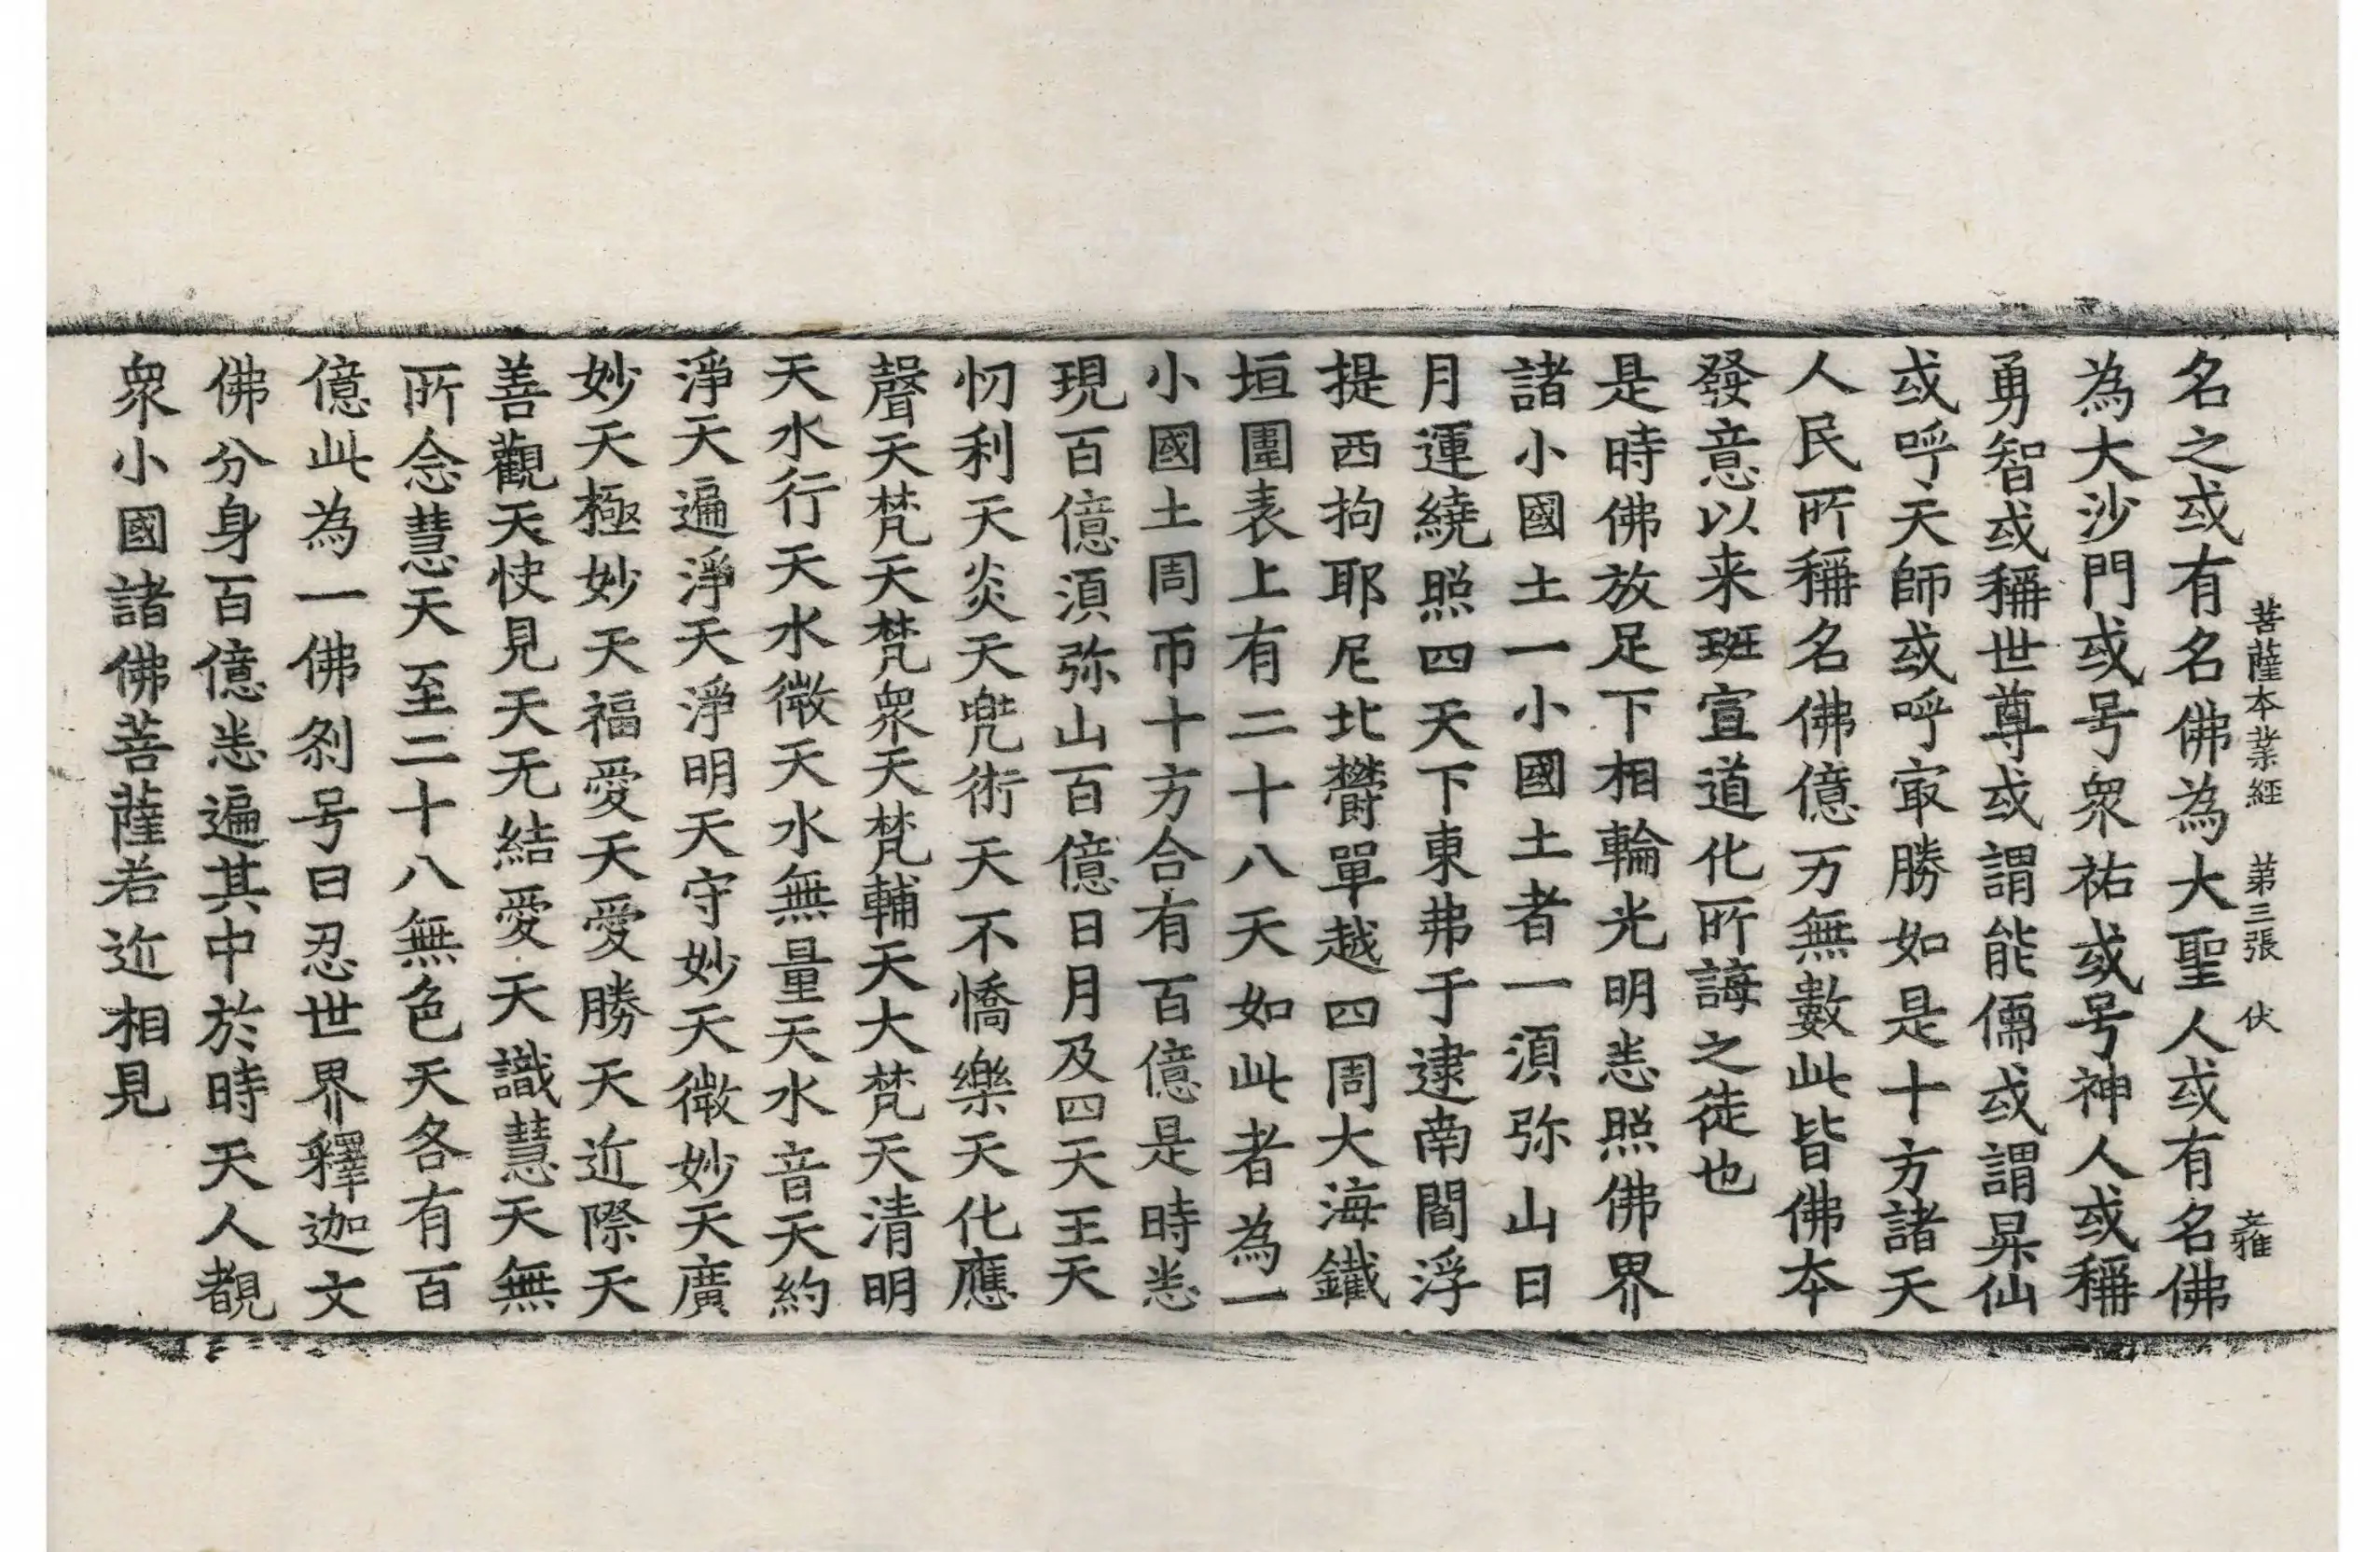 菩薩本業經 第三張 伏
名之或有名佛為大聖人或有名佛
為大沙門或号衆祐或号神人或稱
勇智或稱世尊或謂能儒或謂昇仙
或呼天師或呼㝡勝如是十方諸天
人民所稱名佛億万無數此皆佛本
發意以来班宣道化所誨之徒也
是時佛放足下相輪光明悉照佛界
諸小國土一小國土者一須弥山日
月運繞照四天下東弗于逮南閻浮
提西拘耶尼北欝單越四周大海鐵
垣圍表上有二十八天如此者為一
小國土周帀十方合有百億是時悉
現百億須弥山百億日月及四天王天
忉利天炎天兜術天不憍樂天化應
聲天梵天梵衆天梵輔天大梵天清明
天水行天水微天水無量天水音天約
淨天遍淨天淨明天守妙天微妙天廣
妙天極妙天福愛天愛勝天近際天
善觀天快見天无結愛天識慧天無
所念慧天至二十八無色天各有百
億此為一佛刹号曰忍世界釋迦文
佛分身百億悉遍其中於時天人覩
衆小國諸佛菩薩若近相見